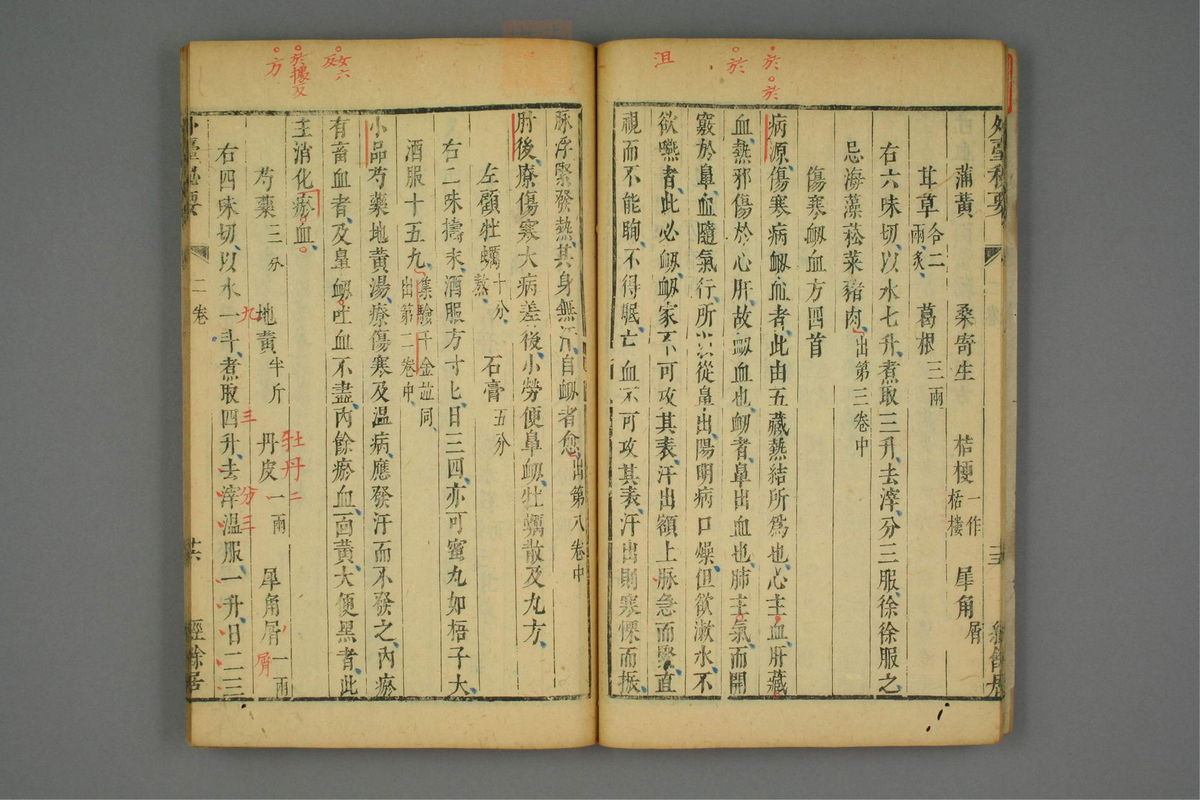 於
於
於
沮
外臺秘要
蒲黃 桑寄生 桔梗一作栝樓 犀角屑
甘草各二兩炙 葛根三兩
右六味切、以水七升、煮取三升、去滓、分三服、徐徐服之
忌海藻菘菜豬肉 出第三卷中
傷寒衂血方四首
病源、傷寒病衂血者、此由五藏熱結所爲也、心主血、肝藏
血、熱邪傷於心肝、故衂血也、衂者、鼻出血也、肺主氣、而開
竅於鼻、血隨氣行、所以從鼻出、陽明病口燥、但欲漱水、不
欲嚥者、此必衂、衂家不可攻其表、汗出額上、脉急而緊、直
視而不能眴、不得眠、亡血不可攻其表、汗出則寒慄而振、
脉浮緊發熱、其身無汗、自衂者愈、出第八卷中
肘後、療傷寒大病差後、小勞便鼻衂、牡蠣散及丸方、
左顧牡蠣十分、熬、 石膏五分
右二味擣末、酒服方寸匕、日三四、亦可蜜丸如梧子大、
酒服十五丸、集驗千金並同、出第二卷中、
小品芍藥地黃湯、療傷寒及温病、應發汗而不發之、内瘀
有畜血者、及鼻衂吐血不盡、内餘瘀血、面黃、大便黑者、此
主消化瘀血。
芍藥三分 地黃半斤 丹皮一兩 犀角屑一兩
右四味切、以水一斗、煮取四升、去滓、温服一升、日二三
外臺秘要
二卷
經餘居
九
三
牡丹二
分三
屑
方